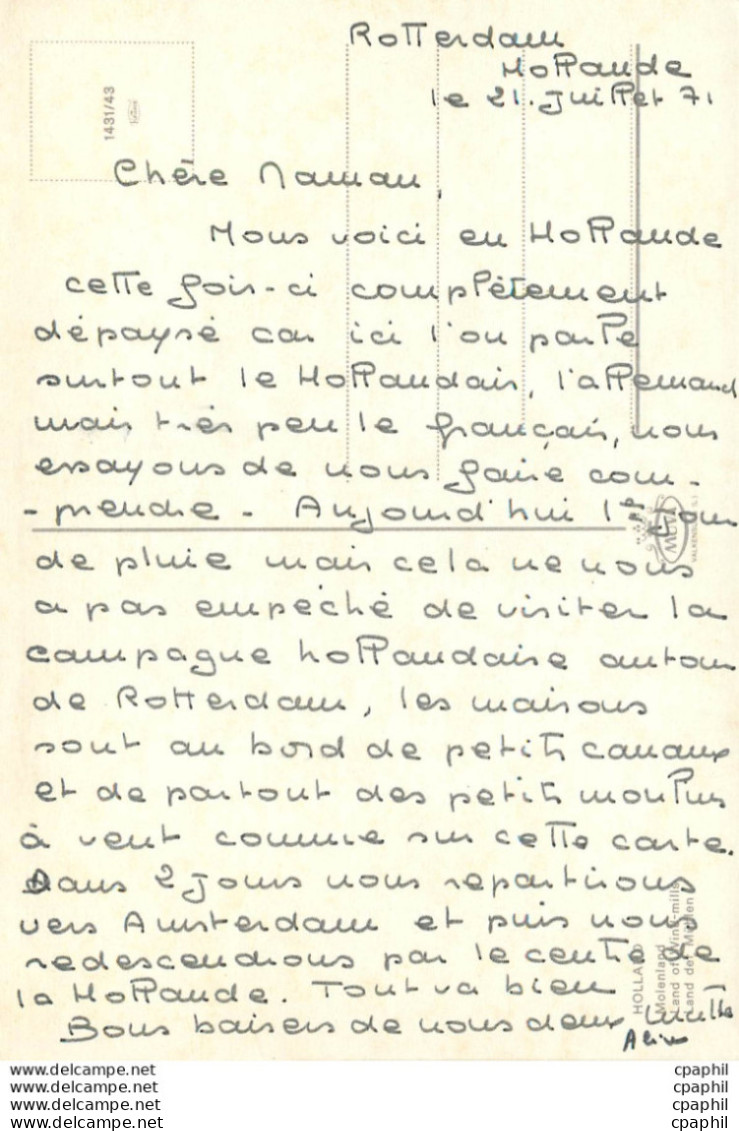 Rotterdam
Hollande
le 21. Juillet 71
1431/43
Chère Maman,
Nous voici en Hollande
cette fois-ci complètement
dépaysé car ici l'on parle
surtout le Hollandais, l'allemand
mais très peu le français, nous
essayons de nous faire com-
-prendre - Aujourd'hui 1er jour
de pluie mais cela ne nous
a pas empêché de visiter la
campagne hollandaise autour
de Rotterdam, les maisons
sont au bord de petits canaux
et de partout des petits moulins
à vent comme sur cette carte.
Dans 2 jours nous repartirons
vers Amsterdam et puis nous
redescendrons par le centre de
la Hollande. Tout va bien
Bons baisers de nous deux
HOLLAND
Molenland
Land of Wind-mills
Land der Mühlen
cpaphil
cpaphil
cpaphil
cpaphil
cpaphil
cpaphil
cpaphil
cpaphil